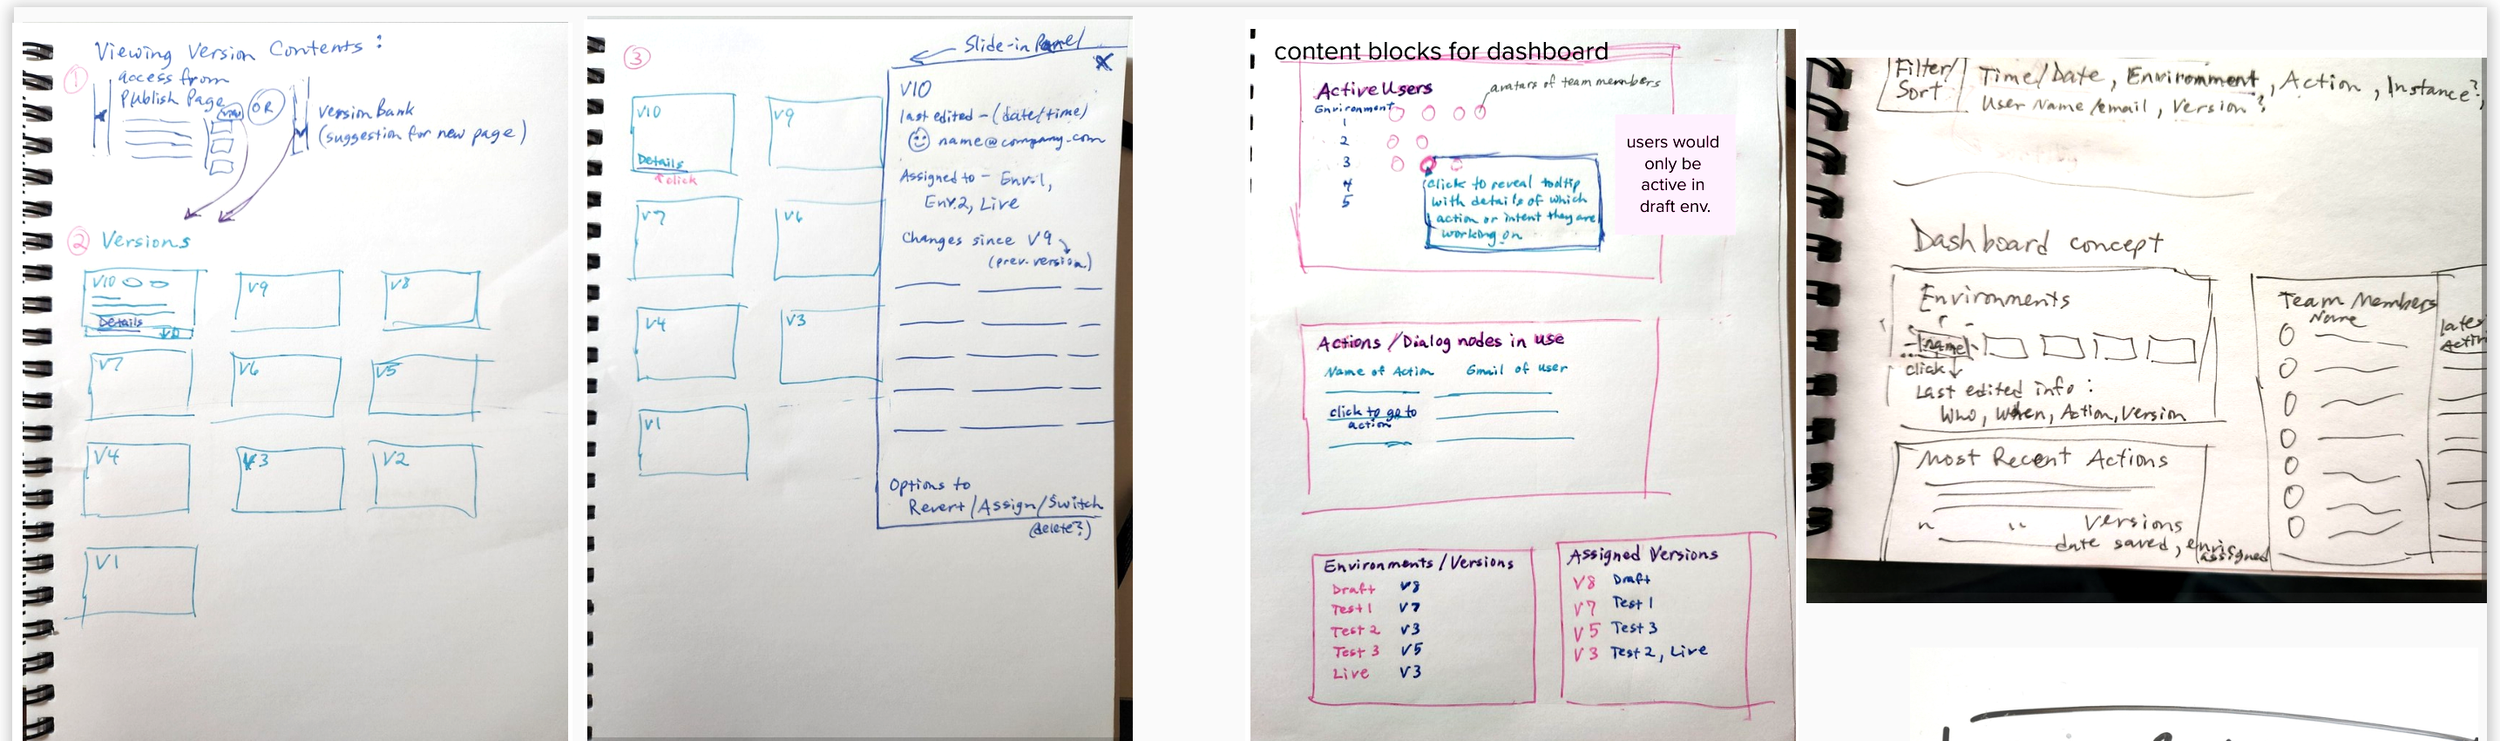 Viewing Version Contents :
1
access from
Publish Page
view
OR
Version Bank
(suggestion for new page)
2 Versions
V10
Details
V9
V8
V7
V6
V5
V4
V3
V2
V1
3
Slide-in Panel
X
V10
Details
click
V9
V7
V6
V4
V3
V1
V10
last edited - (date/time)
name@company.com
Assigned to - Env.1,
Env.2, Live
Changes since V9
(prev. version)
Options to
Revert/Assign/Switch
(delete?)
content blocks for dashboard
Active Users
avatars of team members
Environment
1
2
3
4
5
click to reveal tooltip
with details of which
action or intent they are
working on
users would
only be
active in
draft env.
Actions / Dialog nodes in use
Name of Action
Email of user
click to go to
action
Environments / Versions
Draft V8
Test 1 V7
Test 2 V3
Test 3 V5
Live V3
Assigned Versions
V8 Draft
V7 Test 1
V5 Test 3
V3 Test 2, Live
Filter/
Sort
Time/Date, Environment, Action, Instance?,
User Name/email, Version?
Dashboard concept
Environments
name
click
Last edited info :
Who, When, Action, Version
Most Recent Actions
" " Versions
date saved,
assigned
Team Members
Name